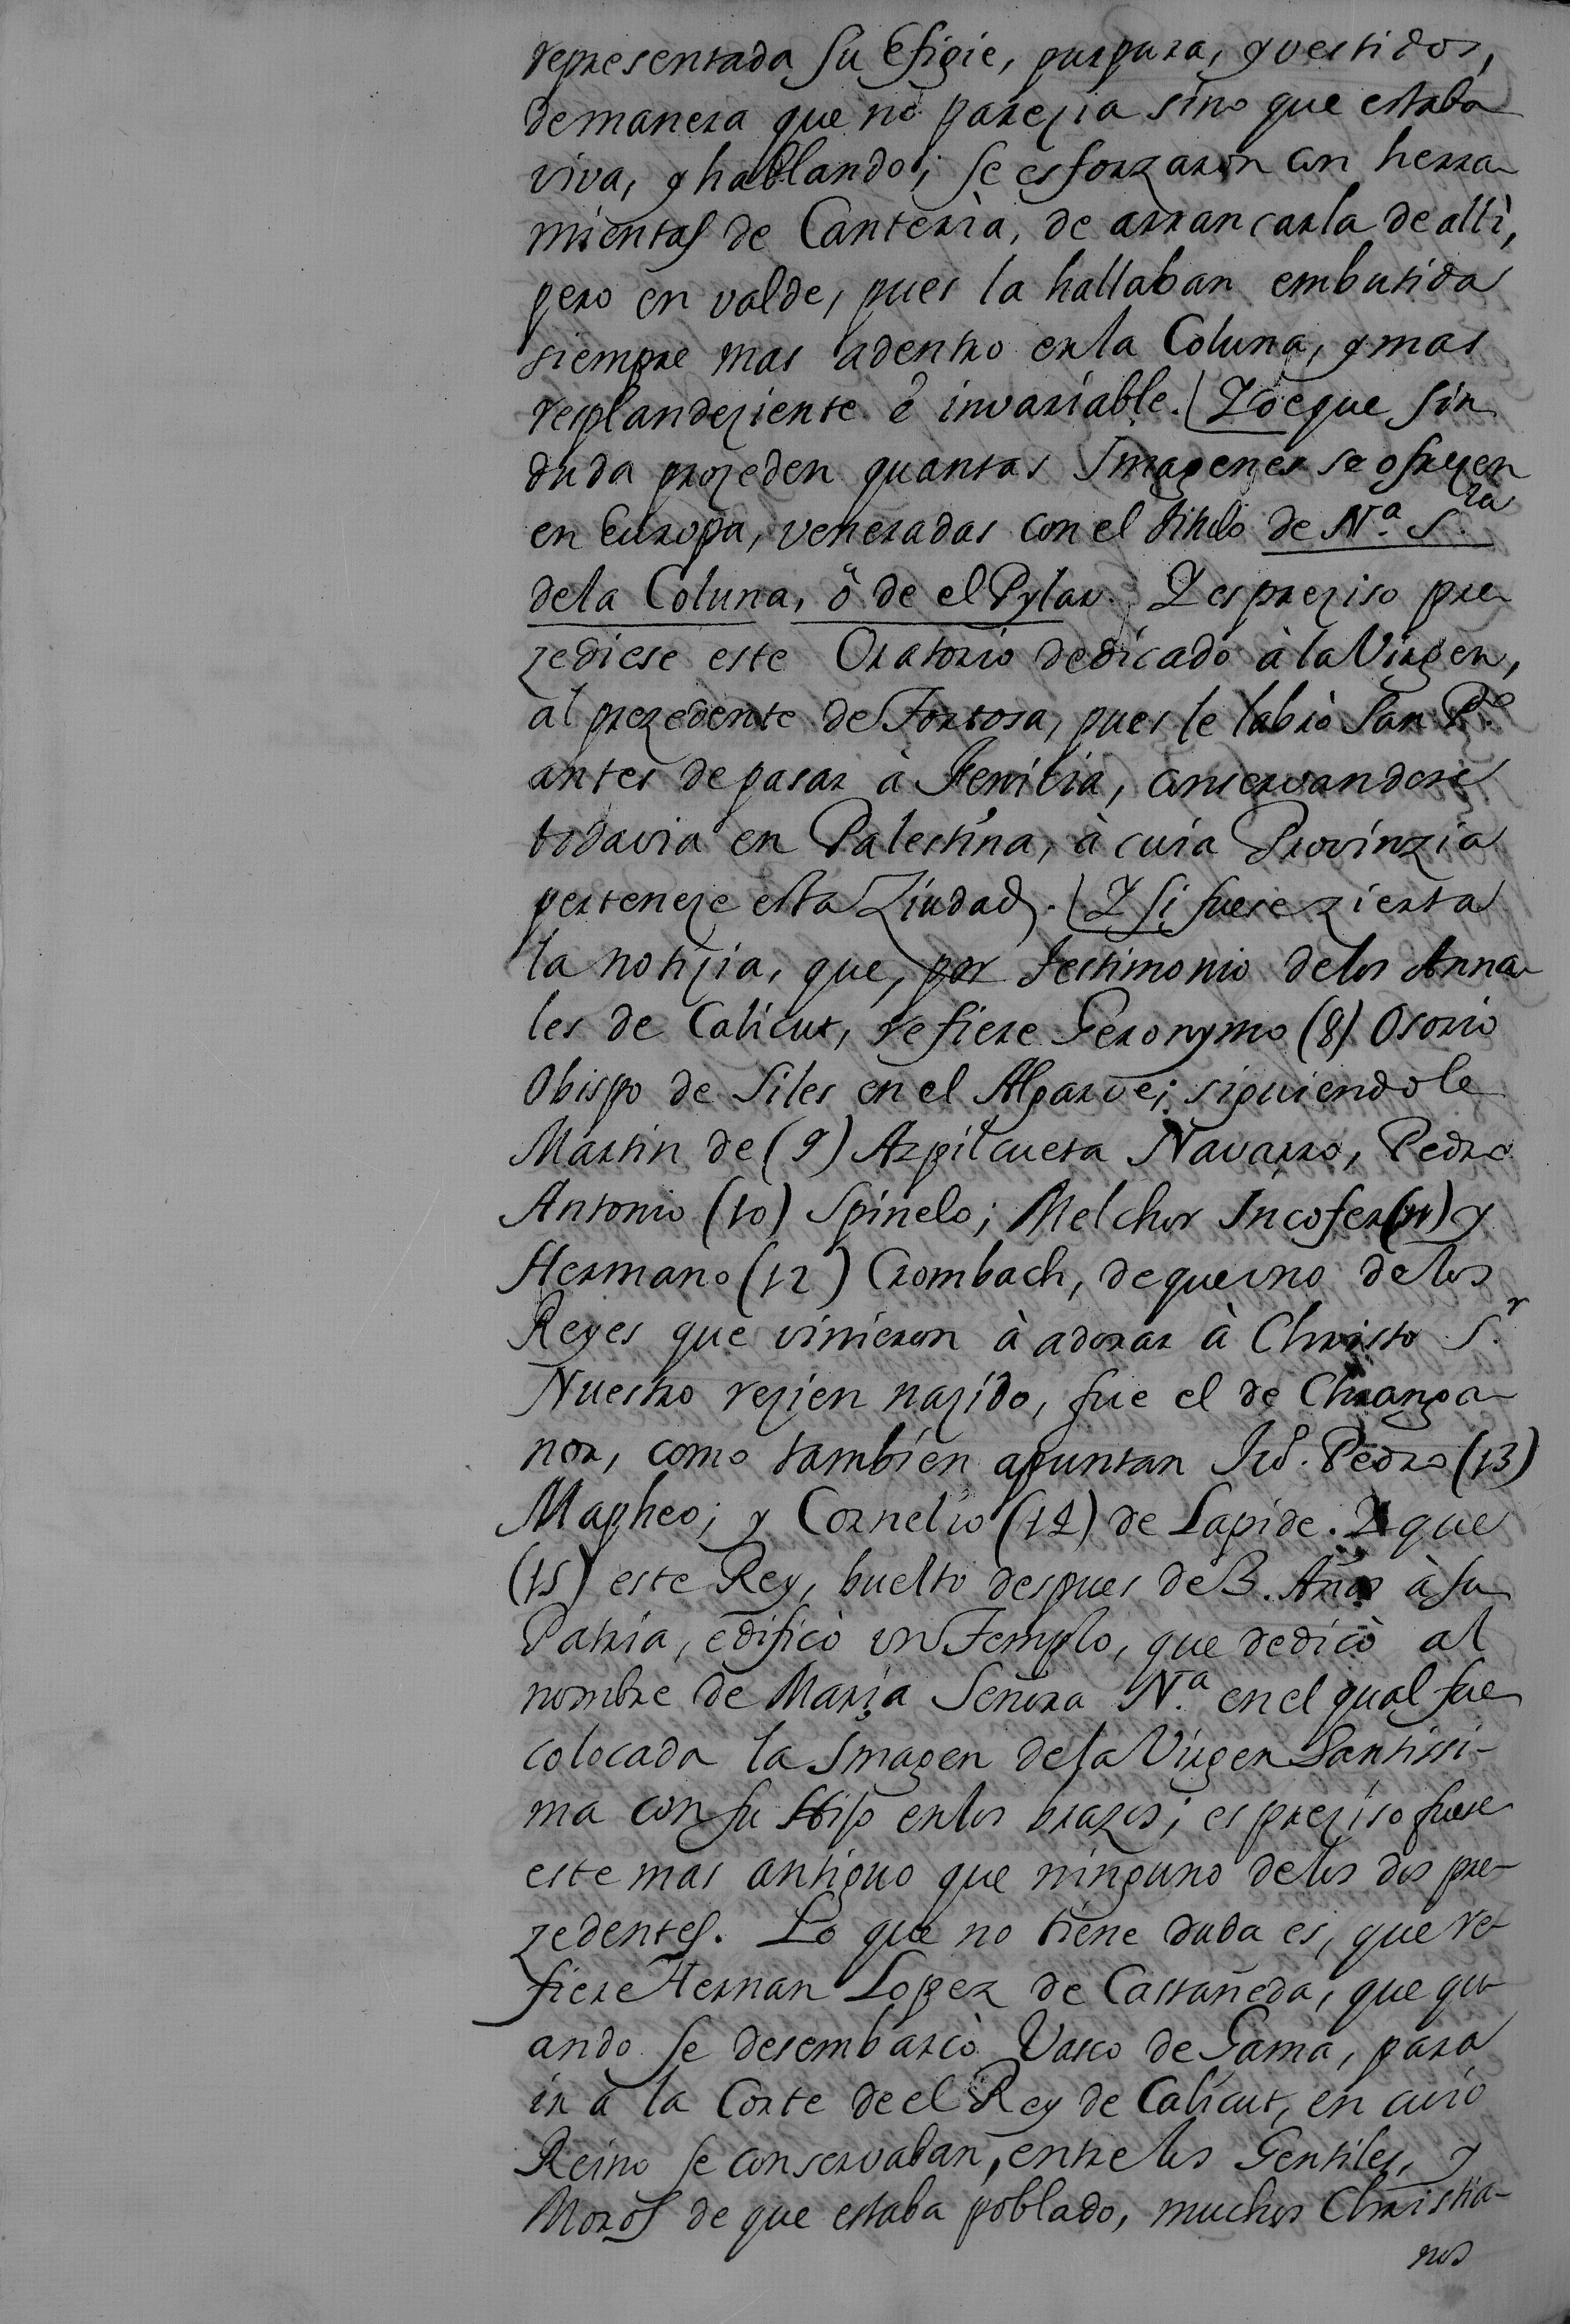 representada su Efigie, purpura, y vestidos,
demanera que no parezia sino que estaba
viva, y hablando; se esforzaron con herra-
mientas de Canteria, de arrancarla de alli,
pero en valde, pues la hallaban embutida
siempre mas adentro en la Coluna, y mas
resplandeziente è invariable. Y de que sin
duda prozeden quantas Imagenes se ofrezen
en Europa, veneradas con el titulo de Nª. S.ra
dela Coluna, ò de el Pylar. Y es preziso pre-
zediese este Oratorio dedicado à la Virgen,
al prezedente de Tortosa, pues le labrò San P.º
antes de pasar à Fenicia, conservandose
todavia en Palestina, à cuia Provinzia
perteneze esta Ziudad. Y si fuese zierta
la notizia, que, por testimonio delos Anna-
les de Calicut, refiere Geronymo (8) Osorio
Obispo de Siles en el Algarve; siguiendole
Martin de (9) Azpilcueta Navarro, Pedro
Antonio (10) Spinelo; Melchor Incofer (11) y
Hermano (12) Crombach, de que uno de los
Reyes que vinieron à adorar à Christo S.r
Nuestro rezien nazido, fue el de Chranga-
nor, como tambien apuntan Ju.º Pedro (13)
Mapheo; y Cornelio (14) de Lapide. Y que
(15) este Rey, buelto despues de 3. Años à su
Patria, edificò un Templo, que dedicò al
nombre de Maria Señora Nª. en el qual fue
colocada la Imagen dela Virgen Santissi-
ma con su Hijo en los brazos; es preziso fuese
este mas antiguo que ninguno delos dos pre-
zedentes. Lo que no tiene duda es, que re-
fiere Hernan Lopez de Castañeda, que qu-
ando se desembarcò Vasco de Gama, para
ir à la Corte de el Rey de Calicut, en cuio
Reino se conservaban, entre los Gentiles, y
Moros de que estaba poblado, muchos Christia-
nos